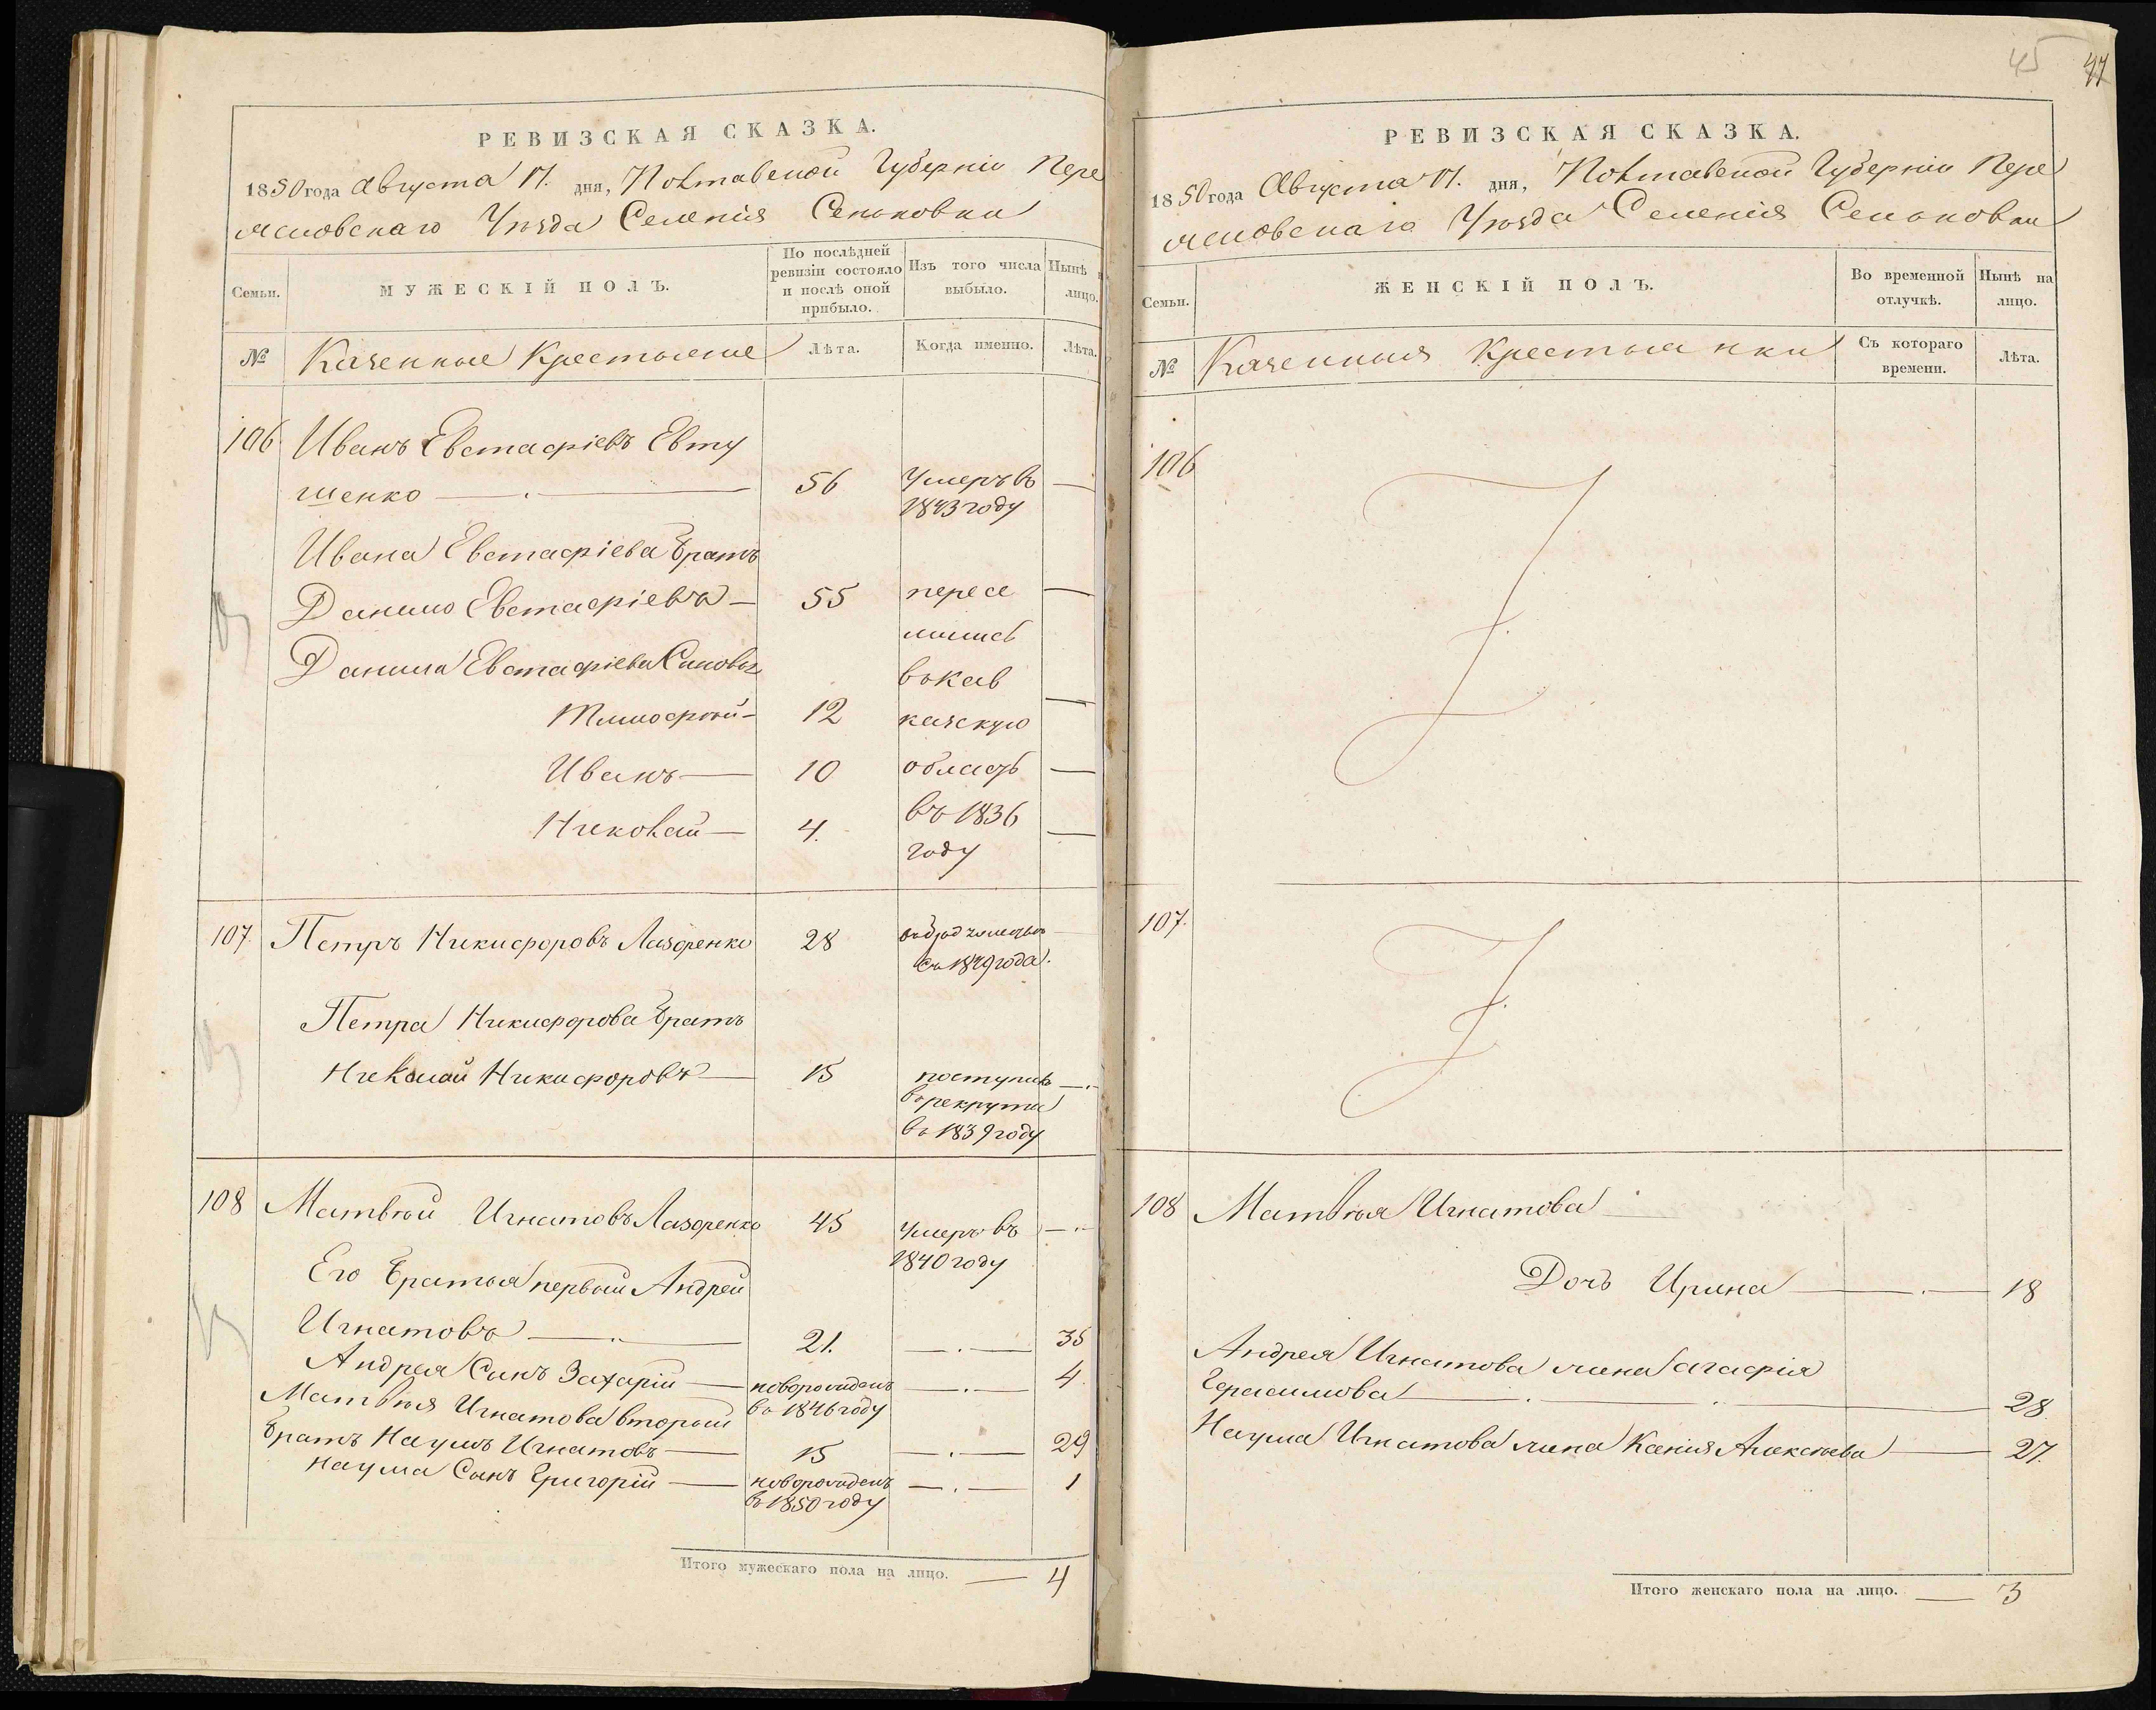 45 47
РЕВИЗСКАЯ СКАЗКА.
1850 года Августа 17. дня, Полтавской Губерніи Пере
яславскаго Уѣзда Селенія Сеньковки
Семьи.
МУЖЕСКІЙ ПОЛЪ.
По послѣдней ревизіи состояло и послѣ оной прибыло.
Изъ того числа выбыло.
Нынѣ н лицо.
№
Казенные Крестьяне
Лѣта.
Когда именно.
Лѣта.
106 Иванъ Евстафіевъ Евту
шенко — 56 Умеръ въ —
1843 году
Ивана Евстафіева братъ
Данило Евстафіевъ — 55 пересе —
лились
Данила Евстафіева Сыновья
въ Кав
Тимофѣй — 12 казскую —
Иванъ — 10 область —
Николай — 4. въ 1836 —
году
107. Петръ Никифоровъ Лазоренко 28
съ 1849 года.
Петра Никифорова братъ
Николай Никифоровъ — 15 поступилъ —
въ рекруты
въ 1839 году
108 Матвѣй Игнатовъ Лазоренко 45 Умеръ въ —
1840 году
Его братья первый Андрей
Игнатовъ — 21. — 35
Андрея Сынъ Захарій — новорожденъ — 4.
въ 1846 году
Матвѣя Игнатова второй
братъ Наумъ Игнатовъ — 15 — 29
Наума Сынъ Григорій — новорожденъ — 1
въ 1850 году
Итого мужескаго пола на лицо. — 4
РЕВИЗСКАЯ СКАЗКА.
1850 года Августа 17. дня, Полтавской Губерніи Пере
яславскаго Уѣзда Селенія Сеньковки
Семьи.
ЖЕНСКІЙ ПОЛЪ.
Во временной отлучкѣ.
Нынѣ на лицо.
№
Казенныя Крестьянки
Съ котораго времени.
Лѣта.
106
107.
108 Матвѣя Игнатова
Дочь Ирина — 18
Андрея Игнатова жена Агафія
Герасимова — 28
Наума Игнатова жена Ксенія Алексѣева — 27.
Итого женскаго пола на лицо. — 3